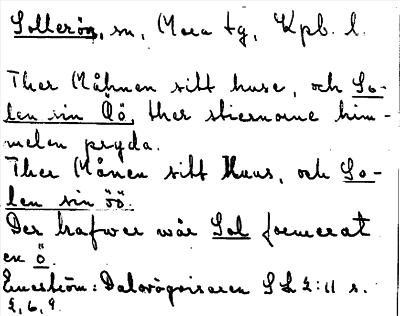 Sollerön, sn, Mora tg, Kpb. l.
Ther Måhnen sitt huse, och So-
len sin Öö, ther stiernorne him-
melen pryda.
Ther Månen sitt Huus, och So-
len sin öö.
Der hafwer wår Sol formerat
en ö.
Eneström: Dalavägvisaren SL 2:11 s.
2, 6, 9.